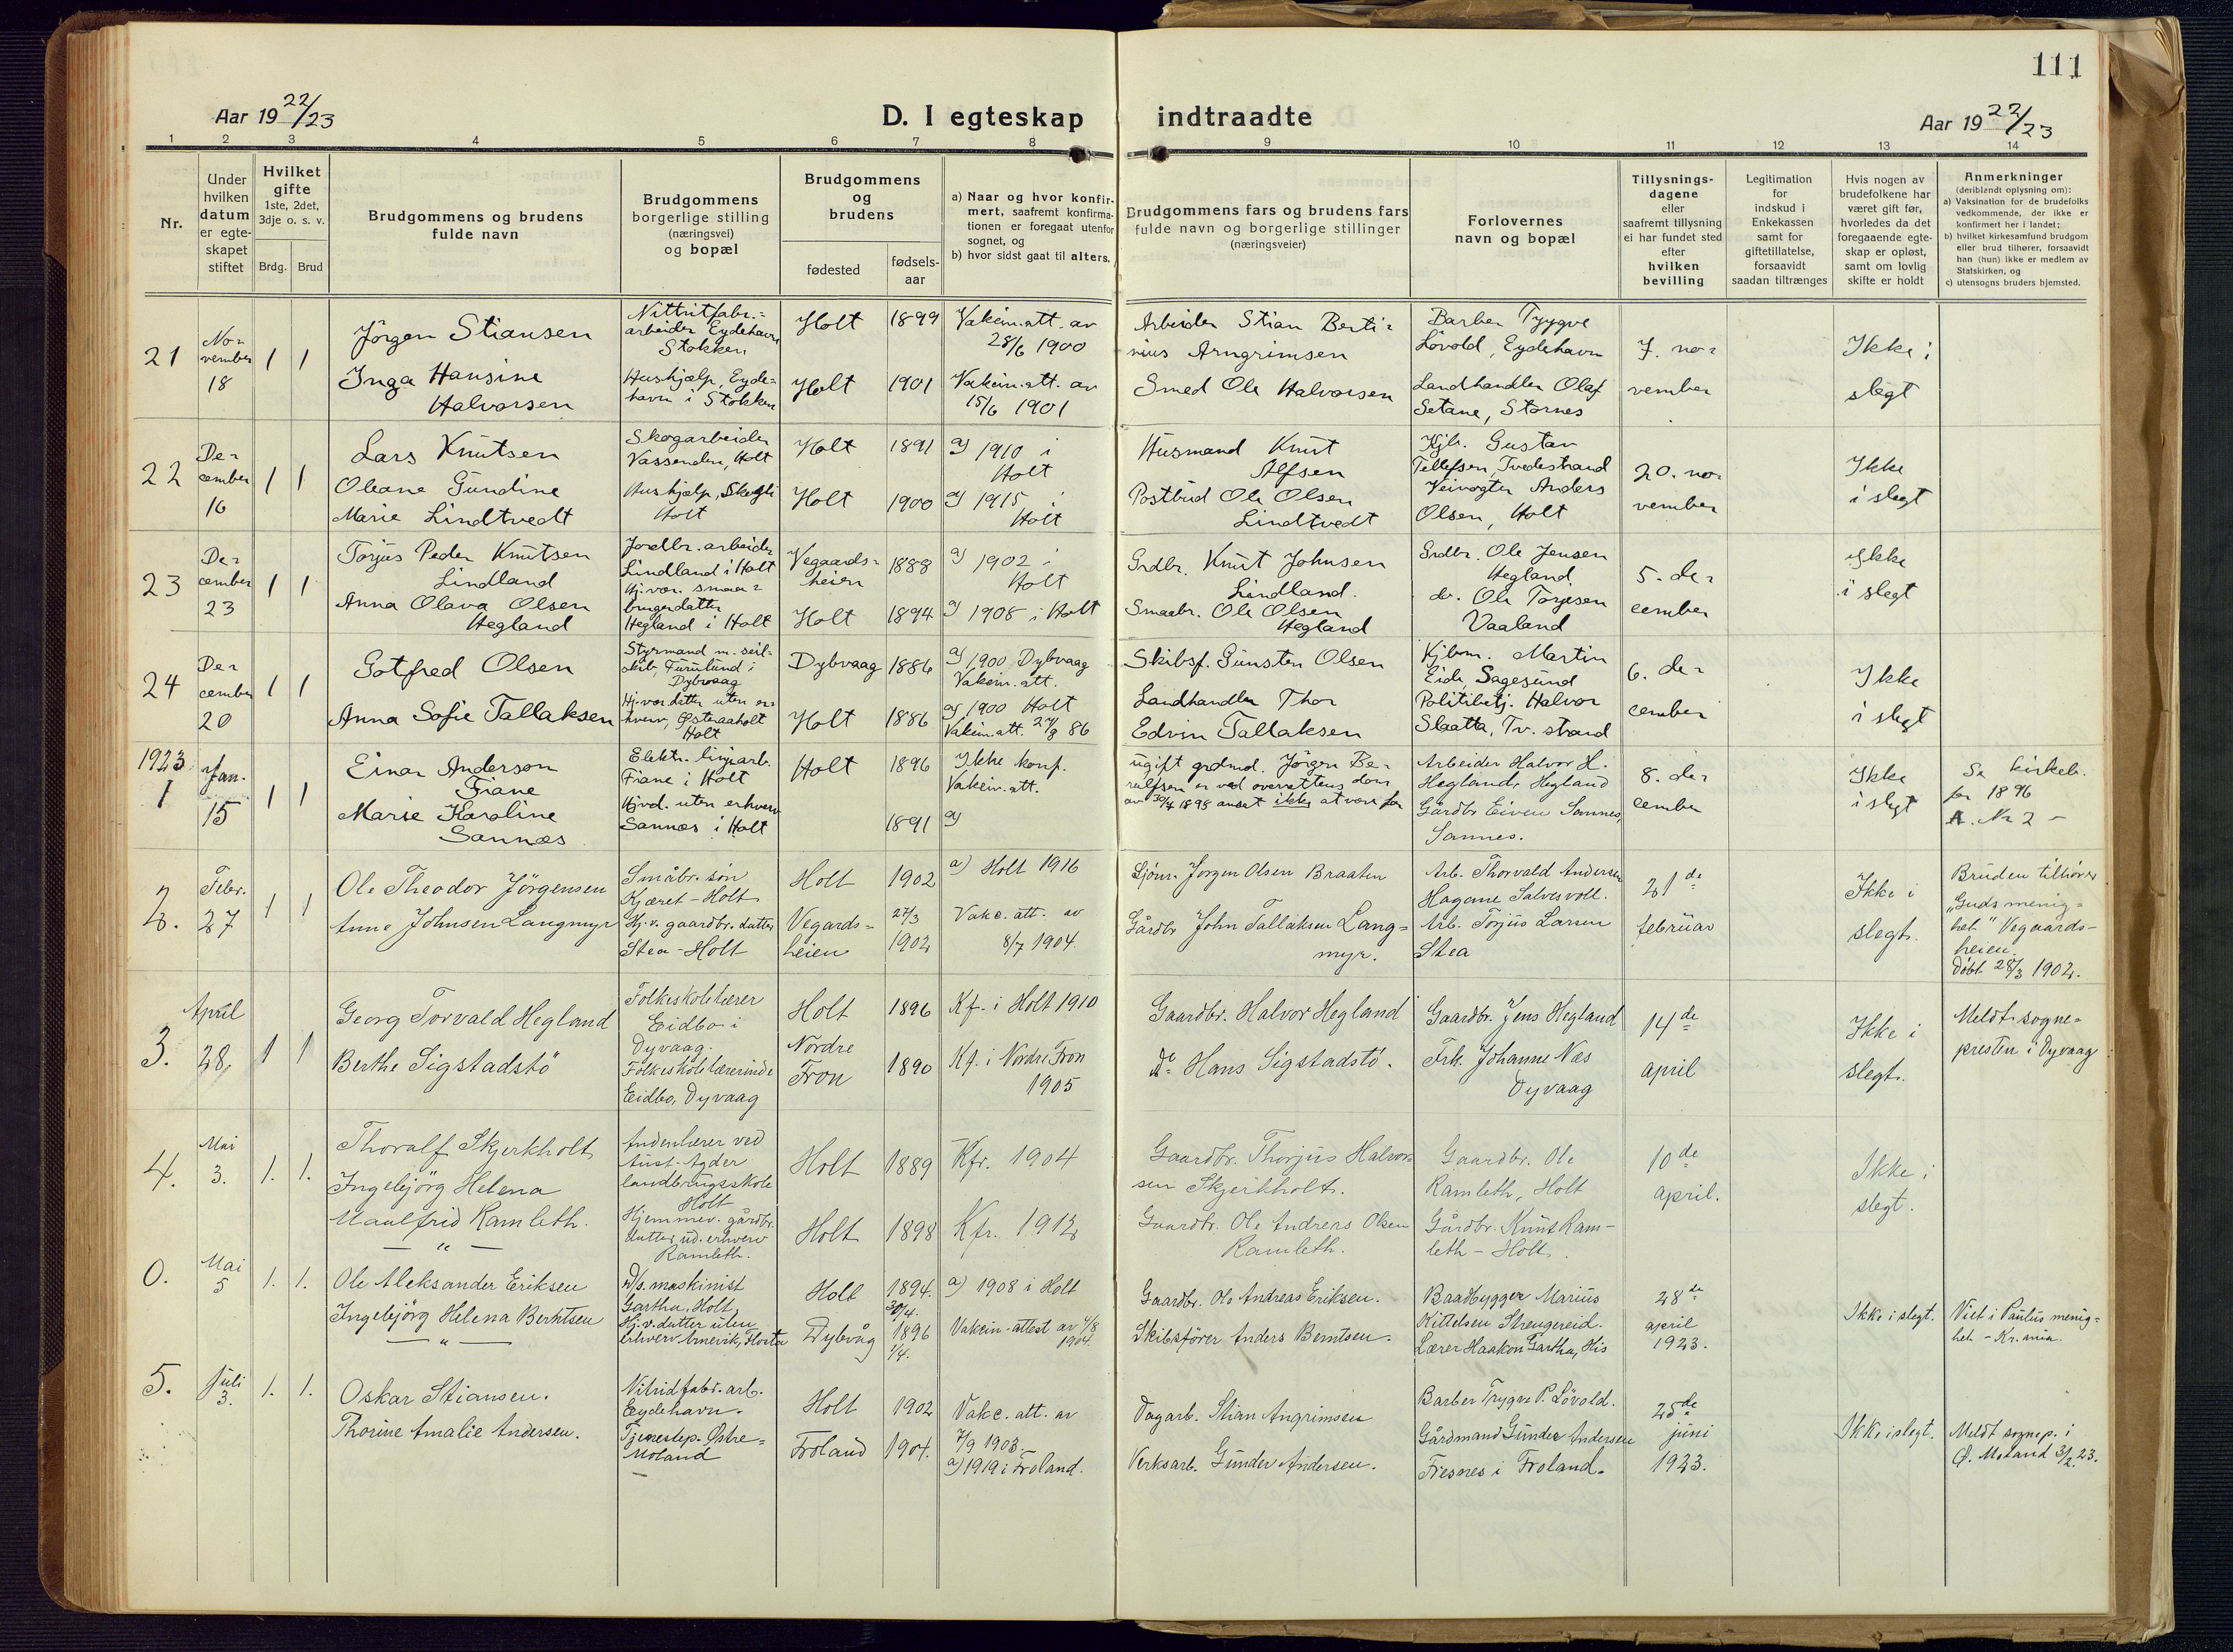 111
Aar 19 22/23
D. I egteskap indtraadte
Aar 19 22/23
1 2 3 4 5 6 7 8 9 10 11 12 13 14
Nr.
Under hvilken datum er egteskapet stiftet
Hvilket gifte
1ste, 2det, 3dje o. s. v.
Brdg. Brud
Brudgommens og brudens fulde navn
Brudgommens borgerlige stilling (næringsvei) og bopæl
Brudgommens og brudens
fødested
fødsels-aar
a) Naar og hvor konfir-
mert, saafremt konfirma-
tionen er foregaat utenfor
sognet, og
b) hvor sidst gaat til alters.
Brudgommens fars og brudens fars
fulde navn og borgerlige stillinger
(næringsveier)
Forlovernes
navn og bopæl
Tillysnings-
dagene
eller
saafremt tillysning
ei har fundet sted
efter
hvilken
bevilling
Legitimation
for
indskud i
Enkekassen
samt for
giftetillatelse,
forsaavidt
saadan tiltrænges
Hvis nogen av
brudefolkene har
været gift før,
hvorledes da det
foregaaende egte-
skap er opløst,
samt om lovlig
skifte er holdt
Anmerkninger
(deriblandt oplysning om):
a) Vaksination for de brudefolks
vedkommende, der ikke er
konfirmert her i landet;
b) hvilket kirkesamfund brudgom
eller brud tilhører, forsaavidt
han (hun) ikke er medlem av
Statskirken, og
c) utensogns bruders hjemsted.
21
No-
vember
18
1 1
Jörgen Stiansen
Inga Hansine
Halvorsen
Nittritfabr.-
arbeider Eydehavn
Stokken
Hushjælp, Eyde-
havn i Stokken
Holt 1899
Holt 1901
Vakcin.att. av
28/6 1900
Vakcin.att. av
15/6 1901
Arbeider Stian Berti-
nius Arngrimsen
Smed Ole Halvorsen
Barber Trygve
Lövold, Eydehavn
Landhandler Olaf
Setane, Stornes
7. no-
vember
Ikke i
slegt
22
De-
cember
16
1 1
Lars Knutsen
Oleane Gundine
Marie Lindtvedt
Skogarbeider
Vassenden, Holt
Hushjælp, Skogli
Holt
Holt 1891
Holt 1900
a) 1910 i
Holt
a) 1915 i
Holt
Husmand Knut
Alfsen
Postbud Ole Olsen
Lindtvedt
Kjb. Gustav
Tellefsen, Tvedestrand
Veivogter Anders
Olsen, Holt
20. no-
vember
Ikke
i slegt
23
De-
cember
23
1 1
Torjus Peder Knutsen
Lindland
Anna Olava Olsen
Hegland
Jordbr. arbeider
Lindland i Holt
Hj.vær. smaa-
brugerdatter
Hegland i Holt
Vegaards-
heien 1888
Holt 1894
a) 1902 i
Holt
a) 1908 i Holt
Grdbr. Knut Johnsen
Lindland.
Smaabr. Ole Olsen
Hegland
Grdbr. Ole Jensen
Hegland
do. Ole Torjesen
Vaaland
5. de-
cember
Ikke
i slegt
24
De-
cember
20
1 1
Gotfred Olsen
Anna Sofie Tallaksen
Styrmand m. seil-
skib, Furulund i
Dybvaag
Hj.vær. datter uten er-
hverv, Østeraaholt
Holt
Dybvaag 1886
Holt 1886
a) 1900 Dybvaag
Vakcin.att.
a) 1900 Holt
Vakcin.att. 86
Skibsf. Gunsten Olsen
Landhandler Thor
Edvin Tallaksen
Kjbm. Martin
Eide, Sagesund
Politibetj. Halvor
Slaatta, Tv. strand
6. de-
cember
Ikke
i slegt
1923
1
Jan.
15
1 1
Einar Anderson
Fiane
Marie Karoline
Sannæs
Elektr. linjearb.
Fiane i Holt
Hjvd. uten erhverv
Sannæs i Holt
Holt 1896
1891
Ikke konf.
Vakcin.att.
a)
ugift grdmd. Jörgen Be-
rulfsen er ved overrettens dom
av 30/4 1898 anset ikke at være far
Arbeider Halvor H.
Hegland, Hegland
Gårdbr. Eiven Sannes,
Sannes.
8. de-
cember
Ikke
i slegt
Se kirkeb.
for 1896
A. Nr 2 –
2.
Febr.
27
1 1
Ole Theodor Jörgensen
Anne Johnsen Langmyr
Småbr. søn
Kjæret – Holt
Hj.v. gaardbr. datter
Stea – Holt
Holt 1902
Vegards-
heien
27/3
1902
a) Holt 1916
Vakc. att. av
8/7 1904.
Sjöm. Jörgen Olsen Braaten
Gårdbr. John Tallaksen Lang-
myr.
Arb. Thorvald Andersen
Hagane Salvesvoll.
Arb. Torjus Larsen
Stea
21de
februar
Ikke i
slegt.
Bruden tilhörer
"Guds menig-
het" Vegaards-
heien.
Döbt 28/3 1902.
3.
April
28.
1 1
Georg Torvald Hegland
Berthe Sigstadstö
Folkeskolelærer
Eidbo i
Dyvaag.
Folkeskolelærerinde
Eidbo, Dyvaag
Holt 1896
Nordre
Fron 1890
Kf. i Holt 1910
Kf. i Nordre Fron
1905
Gaardbr. Halvor Hegland
do Hans Sigstadstö.
Gaardbr. Jens Hegland
Frk. Johanne Næs
Dyvaag
14de
april
Ikke i
slegt.
Meldt sogne-
presten i Dyvaag
4.
Mai
3.
1. 1.
Thoralf Skjerkholt
Ingebjörg Helena
Maalfrid Ramleth.
— " —
Andenlærer ved
Aust-Agder
landbruksskole
Holt
Hjemmev. gårdbr.
datter ud. erhverv
Ramleth.
Holt 1889
Holt 1898
Kfr. 1904
Kfr. 1912
Gaardbr. Thorjus Halvor-
sen Skjerkholt.
Gaardbr. Ole Andreas Olsen
Ramleth.
Gaardbr. Ole
Ramleth, Holt
Gårdbr. Knut Ram-
leth – Holt.
10de
april.
Ikke i
slegt.
0.
Mai
5
1. 1.
Ole Aleksander Eriksen
Ingebjörg Helena Berntsen
— " —
D/s. maskinist
Gartha, Holt,
Hj.v. datter uten
erhverv Arnevik, Flosta
Holt 1894.
30/4.
Dybvåg 1896
1/4.
a) 1908 i Holt
Vakcin-attest av 4/8
1904.
Gaardbr. Ole Andreas Eriksen.
Skibsförer Anders Berntsen.
Baadbygger Marius
Kittelsen Strengereid.
Lærer Haakon Gartha, His
28de
april
1923.
Ikke i slegt.
Viet i Paulus menig-
het – Kr.ania.
5.
Juli
3.
1. 1.
Oskar Stiansen.
Thorine Amalie Andersen.
Nitridfabr. arb.
Eydehavn.
Tjenestep. Østre-
Moland
Holt 1902
Froland 1904.
Vakc. att. av
7/9 1903.
a) 1919 i Froland.
Dagarb. Stian Angrimsen
Verksarb. Gunder Andersen.
Barber Trygve P. Lövold.
Gårdmand Gunder Andersen
Fresnes i Froland.
25de
juni
1923.
Ikke i slegt.
Meldt sognep. i
Ø. Moland 3/2.23.